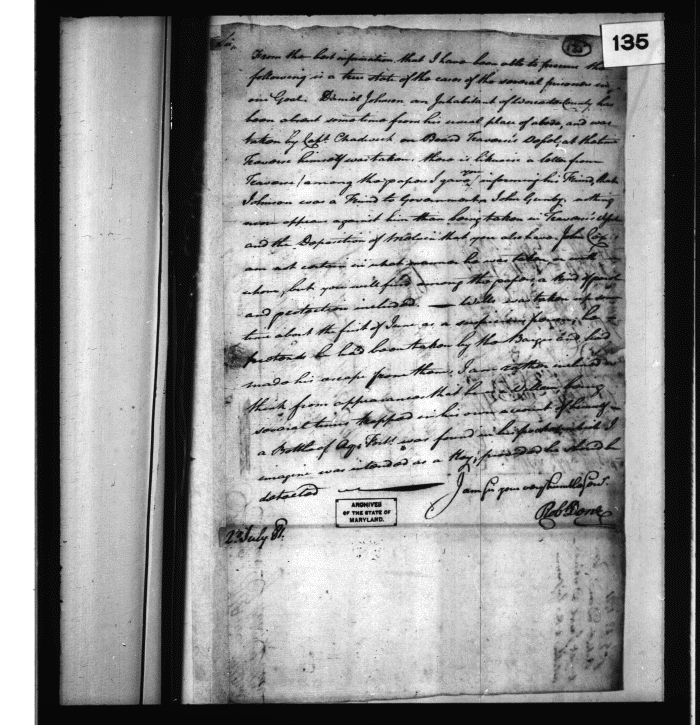 135
Sir,
From the best information that I have been able to procure the
following is a true state of the cases of the several prisoners in
our Goal. Daniel Johnson an Inhabitant of Worcester County has
been absent sometime from his usual place of abode, and was
taken by Capt Chadwick on Board Traverse's Vessel, at that time
Traverse himself was taken, there is likewise a letter from
Traverse (among the papers I gave you) informing his Friend, that
Johnson was a Friend to Government. John Gunby nothing
more appears against him than being taken in Traverse's
and the Deposition of that you also have. John
am not certain in what manner he was taken or with
whom, but you will find among the papers a kind of
and protection inclosed — Willis was taken up some
time about the first of June as a suspicious person, he
pretends he had been taken by the Barges and had
made his escape from them, I am rather inclined to
think from appearances that he is a , having
several times tripped in his own account of himself
a Bottle of was found in his pocket which I
imagine was intended as a Key, provided he should be
detected —
I am Sir your very humble Servt.
Rob Done
ARCHIVES
OF THE STATE OF
MARYLAND.
2d July 81.